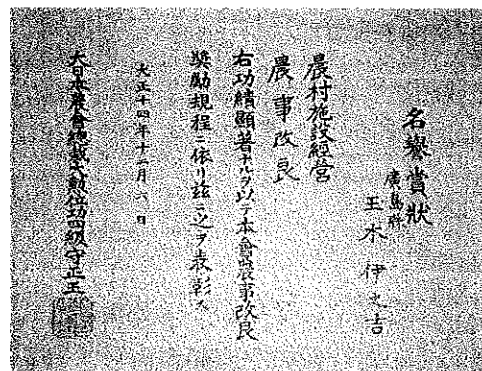 名譽賞狀
廣島縣
玉木伊之吉
農村施設經營
農事改良
右功績顯著ナルヲ以テ本會農事改良
獎勵規程ニ依リ茲ニ之ヲ表彰ス
大正十四年十一月六日
大日本農會總裁大勳位功四級守正王